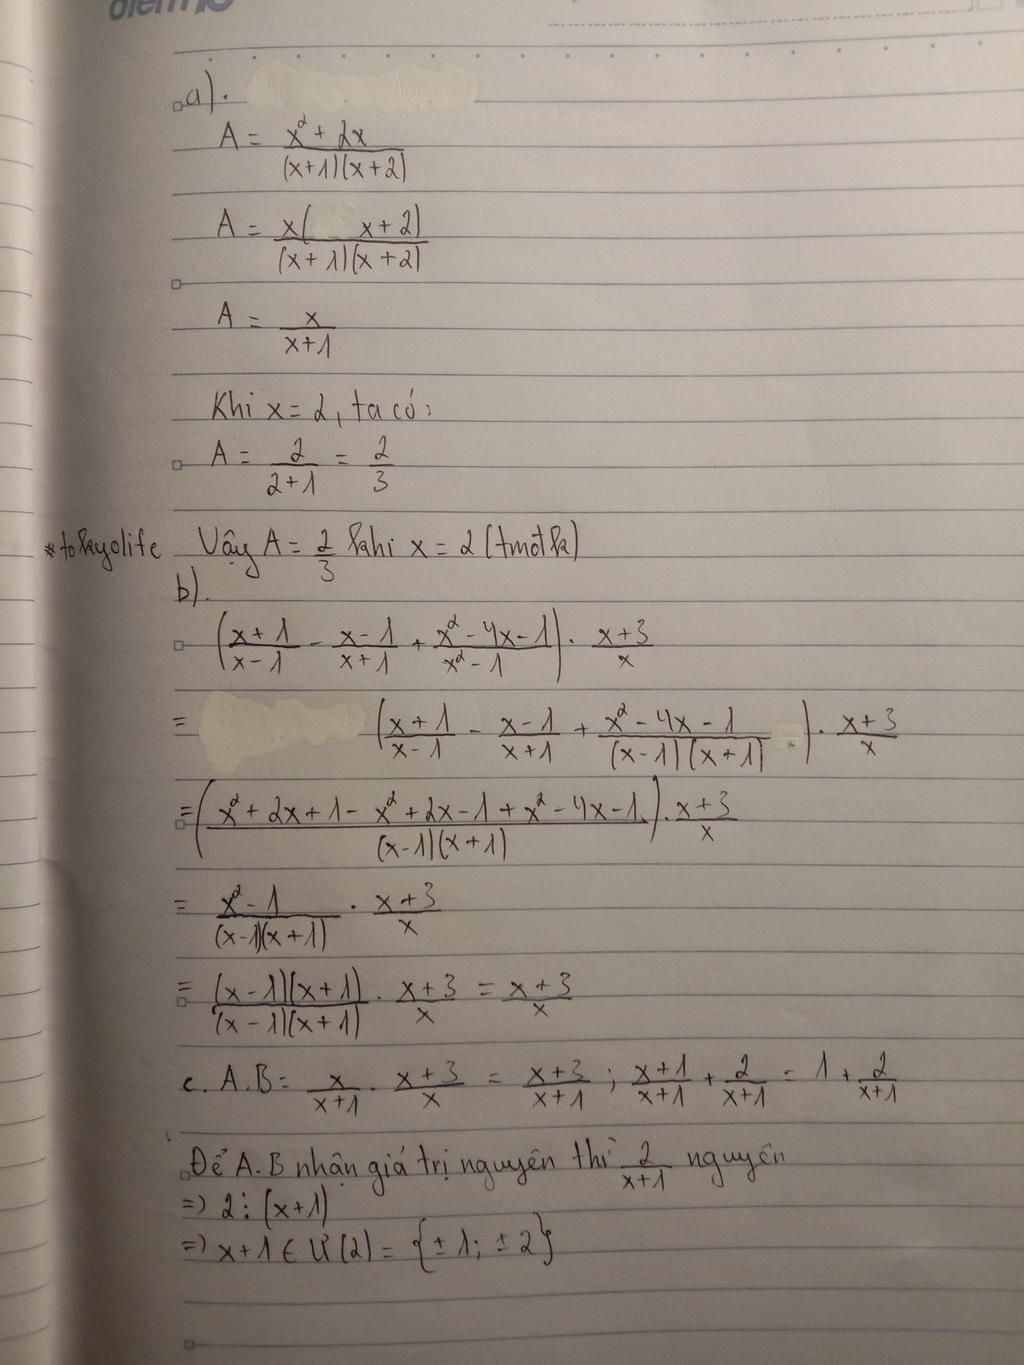 điểm 10
a).
A = \frac{x^2 + 2x}{(x+1)(x+2)}
A = \frac{x(x+2)}{(x+1)(x+2)}
A = \frac{x}{x+1}
Khi x = 2, ta có:
A = \frac{2}{2+1} = \frac{2}{3}
*tokyolife
Vậy A = \frac{2}{3} khi x = 2 (tmđk)
b).
(\frac{x+1}{x-1} - \frac{x-1}{x+1} + \frac{x^2-4x-1}{x^2-1}) . \frac{x+3}{x}
= (\frac{x+1}{x-1} - \frac{x-1}{x+1} + \frac{x^2-4x-1}{(x-1)(x+1)}) . \frac{x+3}{x}
= (\frac{x^2+2x+1-x^2+2x-1+x^2-4x-1}{(x-1)(x+1)}) . \frac{x+3}{x}
= \frac{x^2-1}{(x-1)(x+1)} . \frac{x+3}{x}
= \frac{(x-1)(x+1)}{(x-1)(x+1)} . \frac{x+3}{x} = \frac{x+3}{x}
c. A.B = \frac{x}{x+1} . \frac{x+3}{x} = \frac{x+3}{x+1} ; \frac{x+1}{x+1} + \frac{2}{x+1} = 1 + \frac{2}{x+1}
Để A.B nhận giá trị nguyên thì \frac{2}{x+1} nguyên
=> 2 ⋮ (x+1)
=> x+1 ∈ Ư(2) = {±1; ±2}